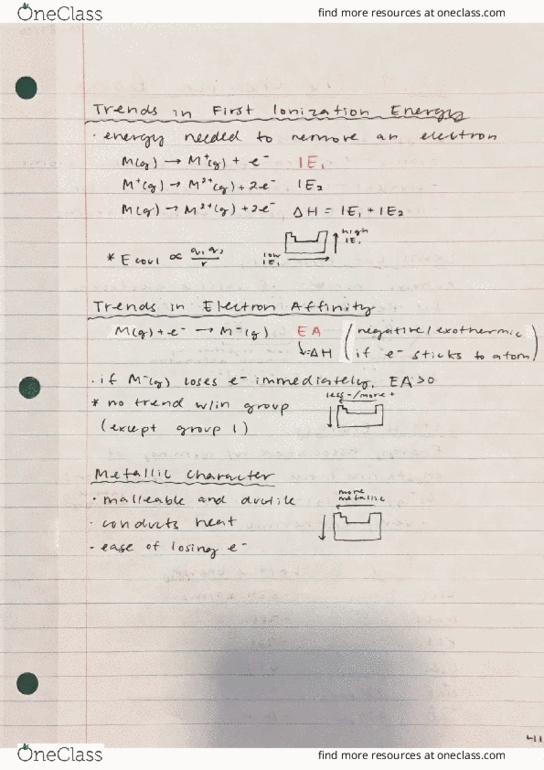 OneClass find more resources at oneclass.com
Trends in First Ionization Energy
· energy needed to remove an electron
M(g) → M⁺(g) + e⁻ IE₁
M⁺(g) → M²⁺(g) + 2e⁻ IE₂
M(g) → M²⁺(g) + 2e⁻ ΔH = IE₁ + IE₂
high IE₁
low IE₁
* Ecoul ∝ q₁q₂/r
Trends in Electron Affinity
M(g) + e⁻ → M⁻(g) EA (negative/exothermic
↳=ΔH if e⁻ sticks to atom)
· if M⁻(g) loses e⁻ immediately, EA>0
less -/more +
* no trend w/in group
(except group 1)
Metallic Character
· malleable and ductile
more metallic
· conducts heat
· ease of losing e⁻
OneClass find more resources at oneclass.com